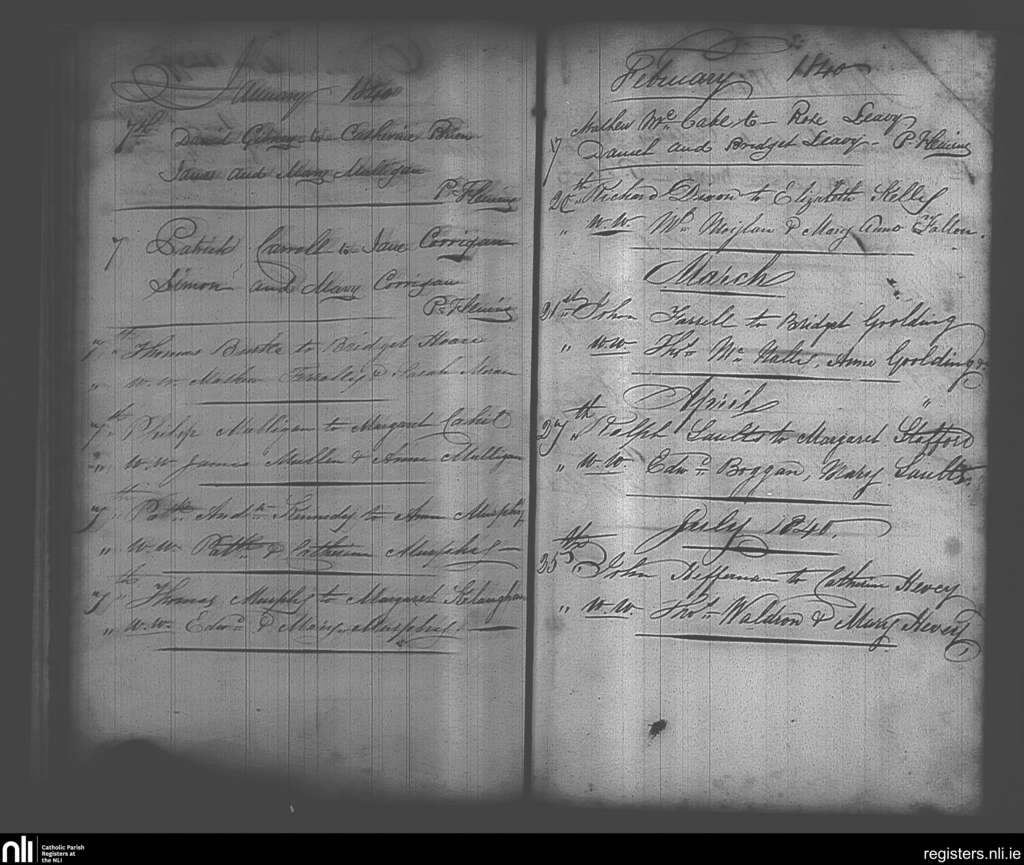 January 1840
7th David to Catherine Brien
James and Mary Mulligan
P. Fleming
7 Patrick Carroll to Jane Corrigan
Simon and Mary Corrigan
P. Fleming
7th Thomas to Bridget Hoare
" W.W. Mathew & Sarah Moran
7th Philip Mulligan to Margaret Cahil
" W.W. James Mullen & Anne Mulligan
7th Kennedy to Anne Murphy
" W.W. Patk & Catherine Murphy
7th Thomas Murphy to Margaret
" W.W. Edwd & Mary Murphy
February 1840
Mathew Mc Cabe to Rose Leavy
7 Daniel and Bridget Leavy - P. Fleming
20th Richard Dixon to Elizabeth Kelly
" W.W. Wm Moylan & Mary Anne Fallon.
March
21st John Farrell to Bridget Goolding
" W.W. Thos Mc Nally, Anne Goolding
April
27th Ralph Saults to Margaret Stafford
" W.W. Edwd Boggan, Mary Saults.
July 1840.
John Heffernan to Catherine Hevey
" W.W. Thos Waldron & Mary Hevey
nli
Catholic Parish
Registers at
the NLI
registers.nli.ie